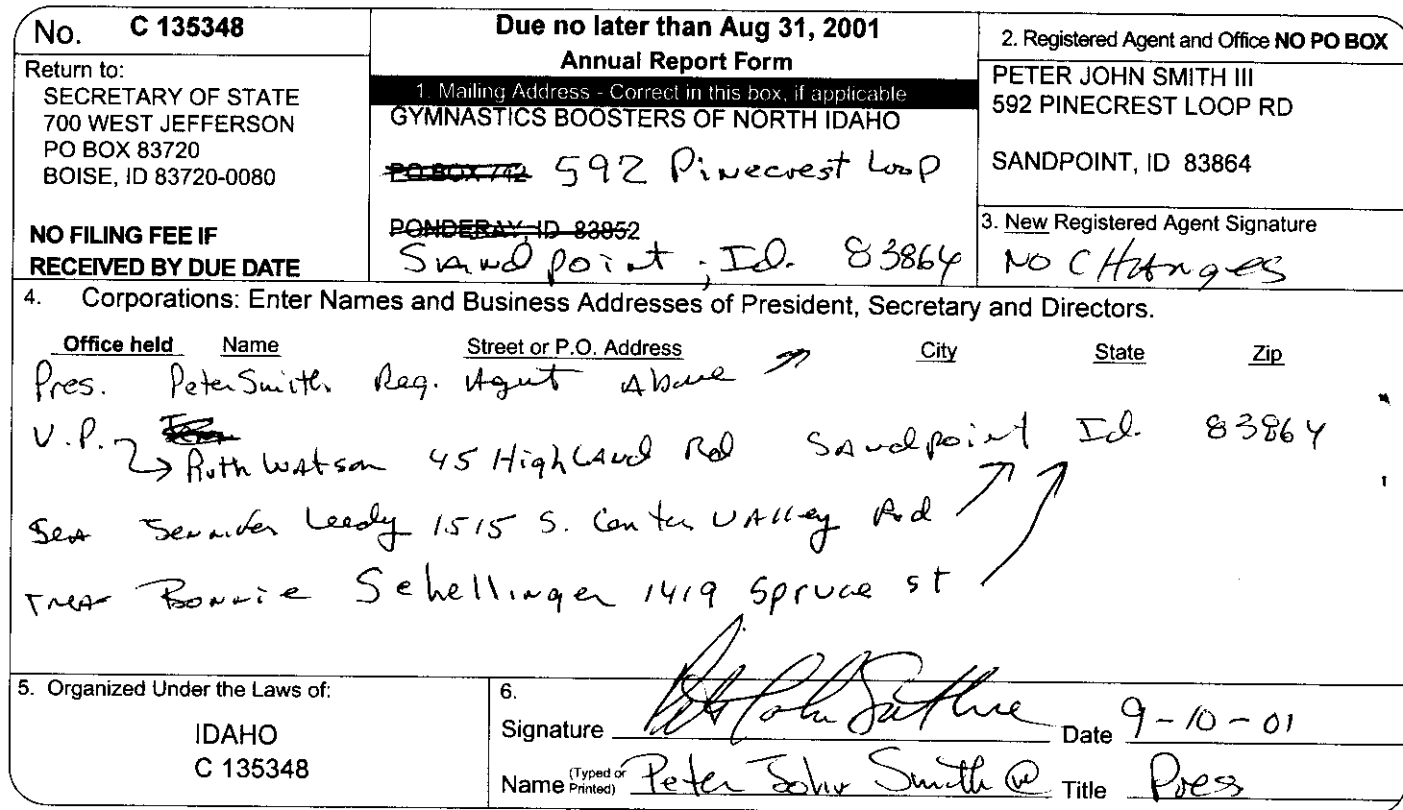 No. C 135348
Return to:
SECRETARY OF STATE
700 WEST JEFFERSON
PO BOX 83720
BOISE, ID 83720-0080
NO FILING FEE IF
RECEIVED BY DUE DATE
Due no later than Aug 31, 2001
Annual Report Form
1. Mailing Address - Correct in this box, if applicable
GYMNASTICS BOOSTERS OF NORTH IDAHO
PO BOX 742 592 Pinecrest Loop
PONDERAY, ID 83852
Sandpoint, Id. 83864
2. Registered Agent and Office NO PO BOX
PETER JOHN SMITH III
592 PINECREST LOOP RD
SANDPOINT, ID 83864
3. New Registered Agent Signature
NO CHAnges
4. Corporations: Enter Names and Business Addresses of President, Secretary and Directors.
Office held Name Street or P.O. Address City State Zip
Pres. Peter Smith Reg. Agent Above
V.P. Ruth Watson 45 Highland Rd Sandpoint Id. 83864
Jennifer Leedy 1515 S. Center Valley Rd
Trea Bonnie Schellinger 1419 Spruce st
5. Organized Under the Laws of:
IDAHO
C 135348
6.
Signature Date 9-10-01
Name (Typed or Printed) Peter John Smith Title Press